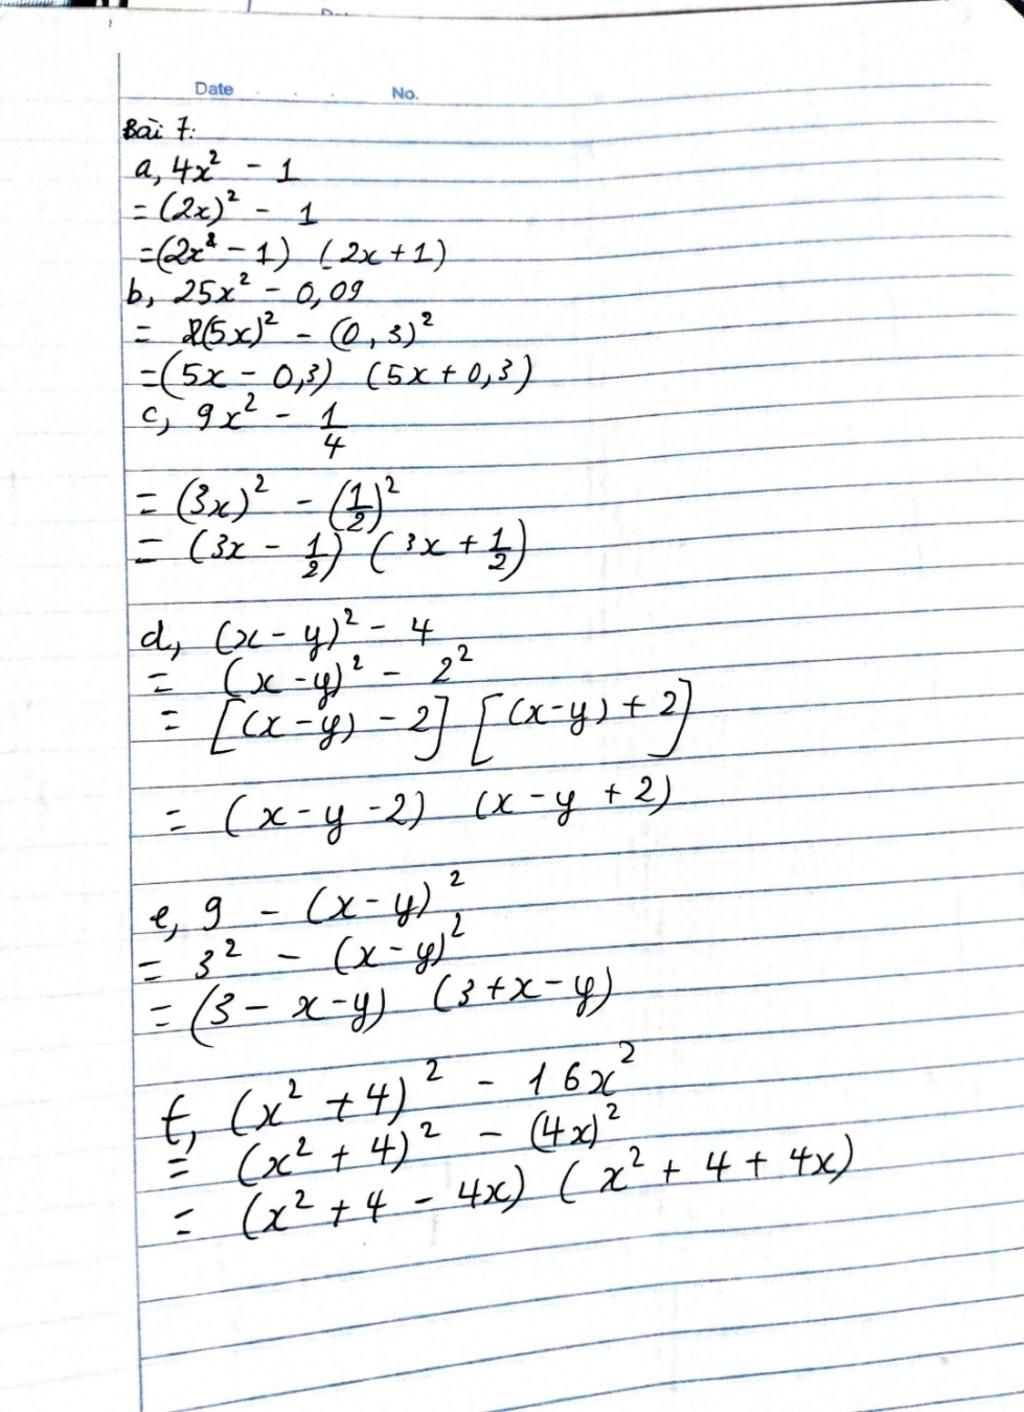 Date No.
Bài 7:
a, 4x² - 1
= (2x)² - 1
= (2x² - 1) (2x + 1)
b, 25x² - 0,09
= (5x)² - (0,3)²
= (5x - 0,3) (5x + 0,3)
c, 9x² - 1/4
= (3x)² - (1/2)²
= (3x - 1/2) (3x + 1/2)
d, (x - y)² - 4
= (x - y)² - 2²
= [(x - y) - 2] [(x - y) + 2]
= (x - y - 2) (x - y + 2)
e, 9 - (x - y)²
= 3² - (x - y)²
= (3 - x - y) (3 + x - y)
f, (x² + 4)² - 16x²
= (x² + 4)² - (4x)²
= (x² + 4 - 4x) (x² + 4 + 4x)